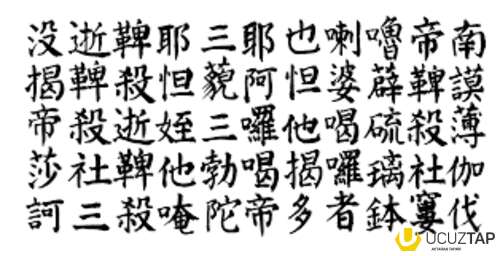 南謨薄伽伐
帝鞞殺社窶
嚕薜硫璃鉢
喇婆喝囉者
也怛他揭多
耶阿囉喝帝
三藐三勃陀
耶怛姪他唵
鞞殺逝鞞殺
逝鞞殺社三
没揭帝莎訶
UCUZTAP